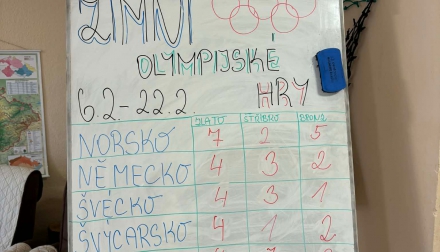 ZIMNÍ
OLYMPIJSKÉ
6.2.-22.2. HRY
ZLATO STŘÍBRO BRONZ
NORSKO 7 2 5
NĚMECKO 4 3 2
ŠVÉCKO 4 3 1
ŠVÝCARSKO 4 1 2